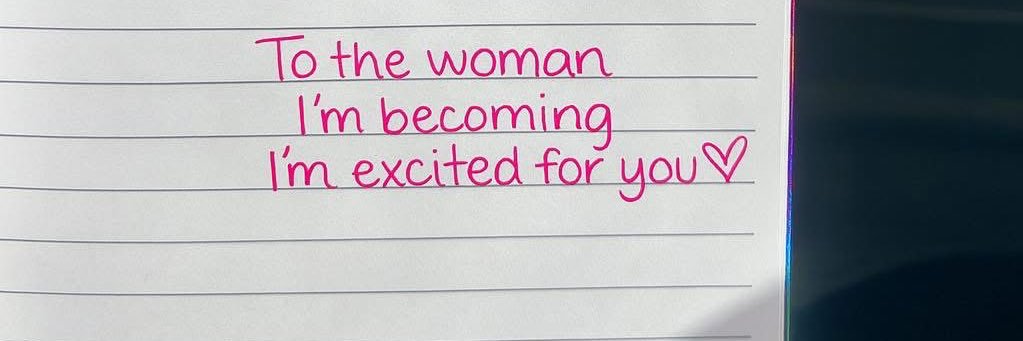 To the woman
I'm becoming
I'm excited for you♡